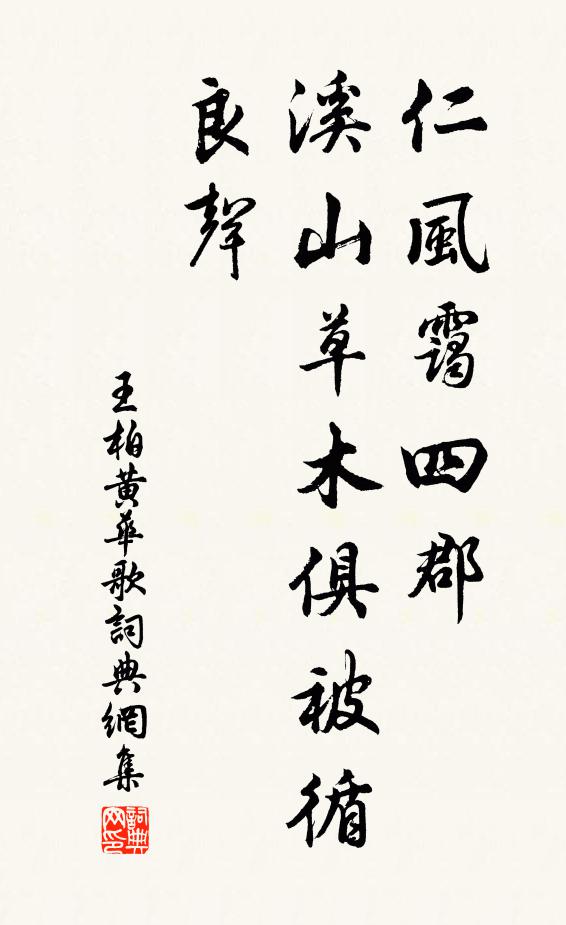 仁風靄四郡
溪山草木俱被循
良聲
王柏黃華歌詞典網集
詞典
网印